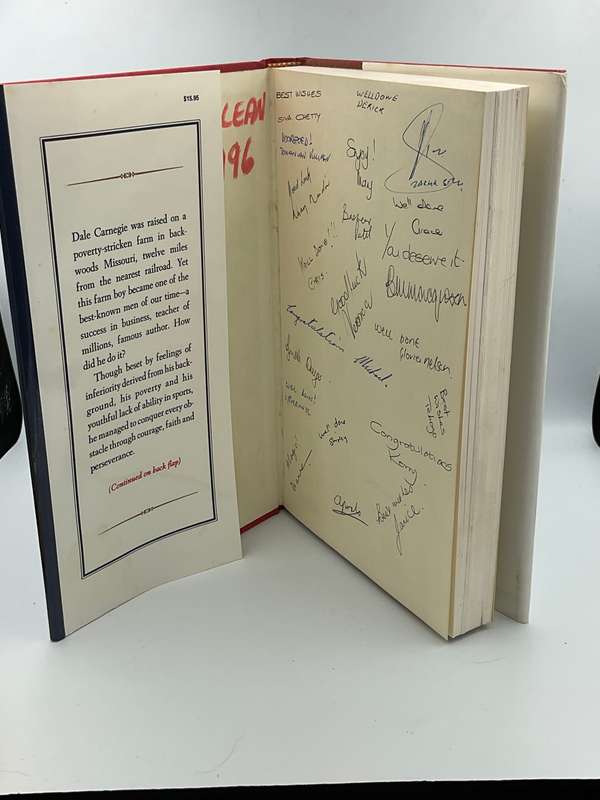 $15.95
Dale Carnegie was raised on a
poverty-stricken farm in back-
woods Missouri, twelve miles
from the nearest railroad. Yet
this farm boy became one of the
best-known men of our time—a
success in business, teacher of
millions, famous author. How
did he do it?
Though beset by feelings of
inferiority derived from his back-
ground, his poverty and his
youthful lack of ability in sports,
he managed to conquer every ob-
stacle through courage, faith and
perseverance.
(Continued on back flap)
CLEAN
96
BEST WISHES
SIVA CHETTY
WELLDONE
DERICK
Enjoy!
May
Well done
Grace
You deserve it
Good luck
Well done!!!
Chris
Goodluck
Congratulations
Well Done
Gloria Nelson.
Michael.
Well done!
Best
wishes
Well done
Congratulations
Kerry
Best wishes